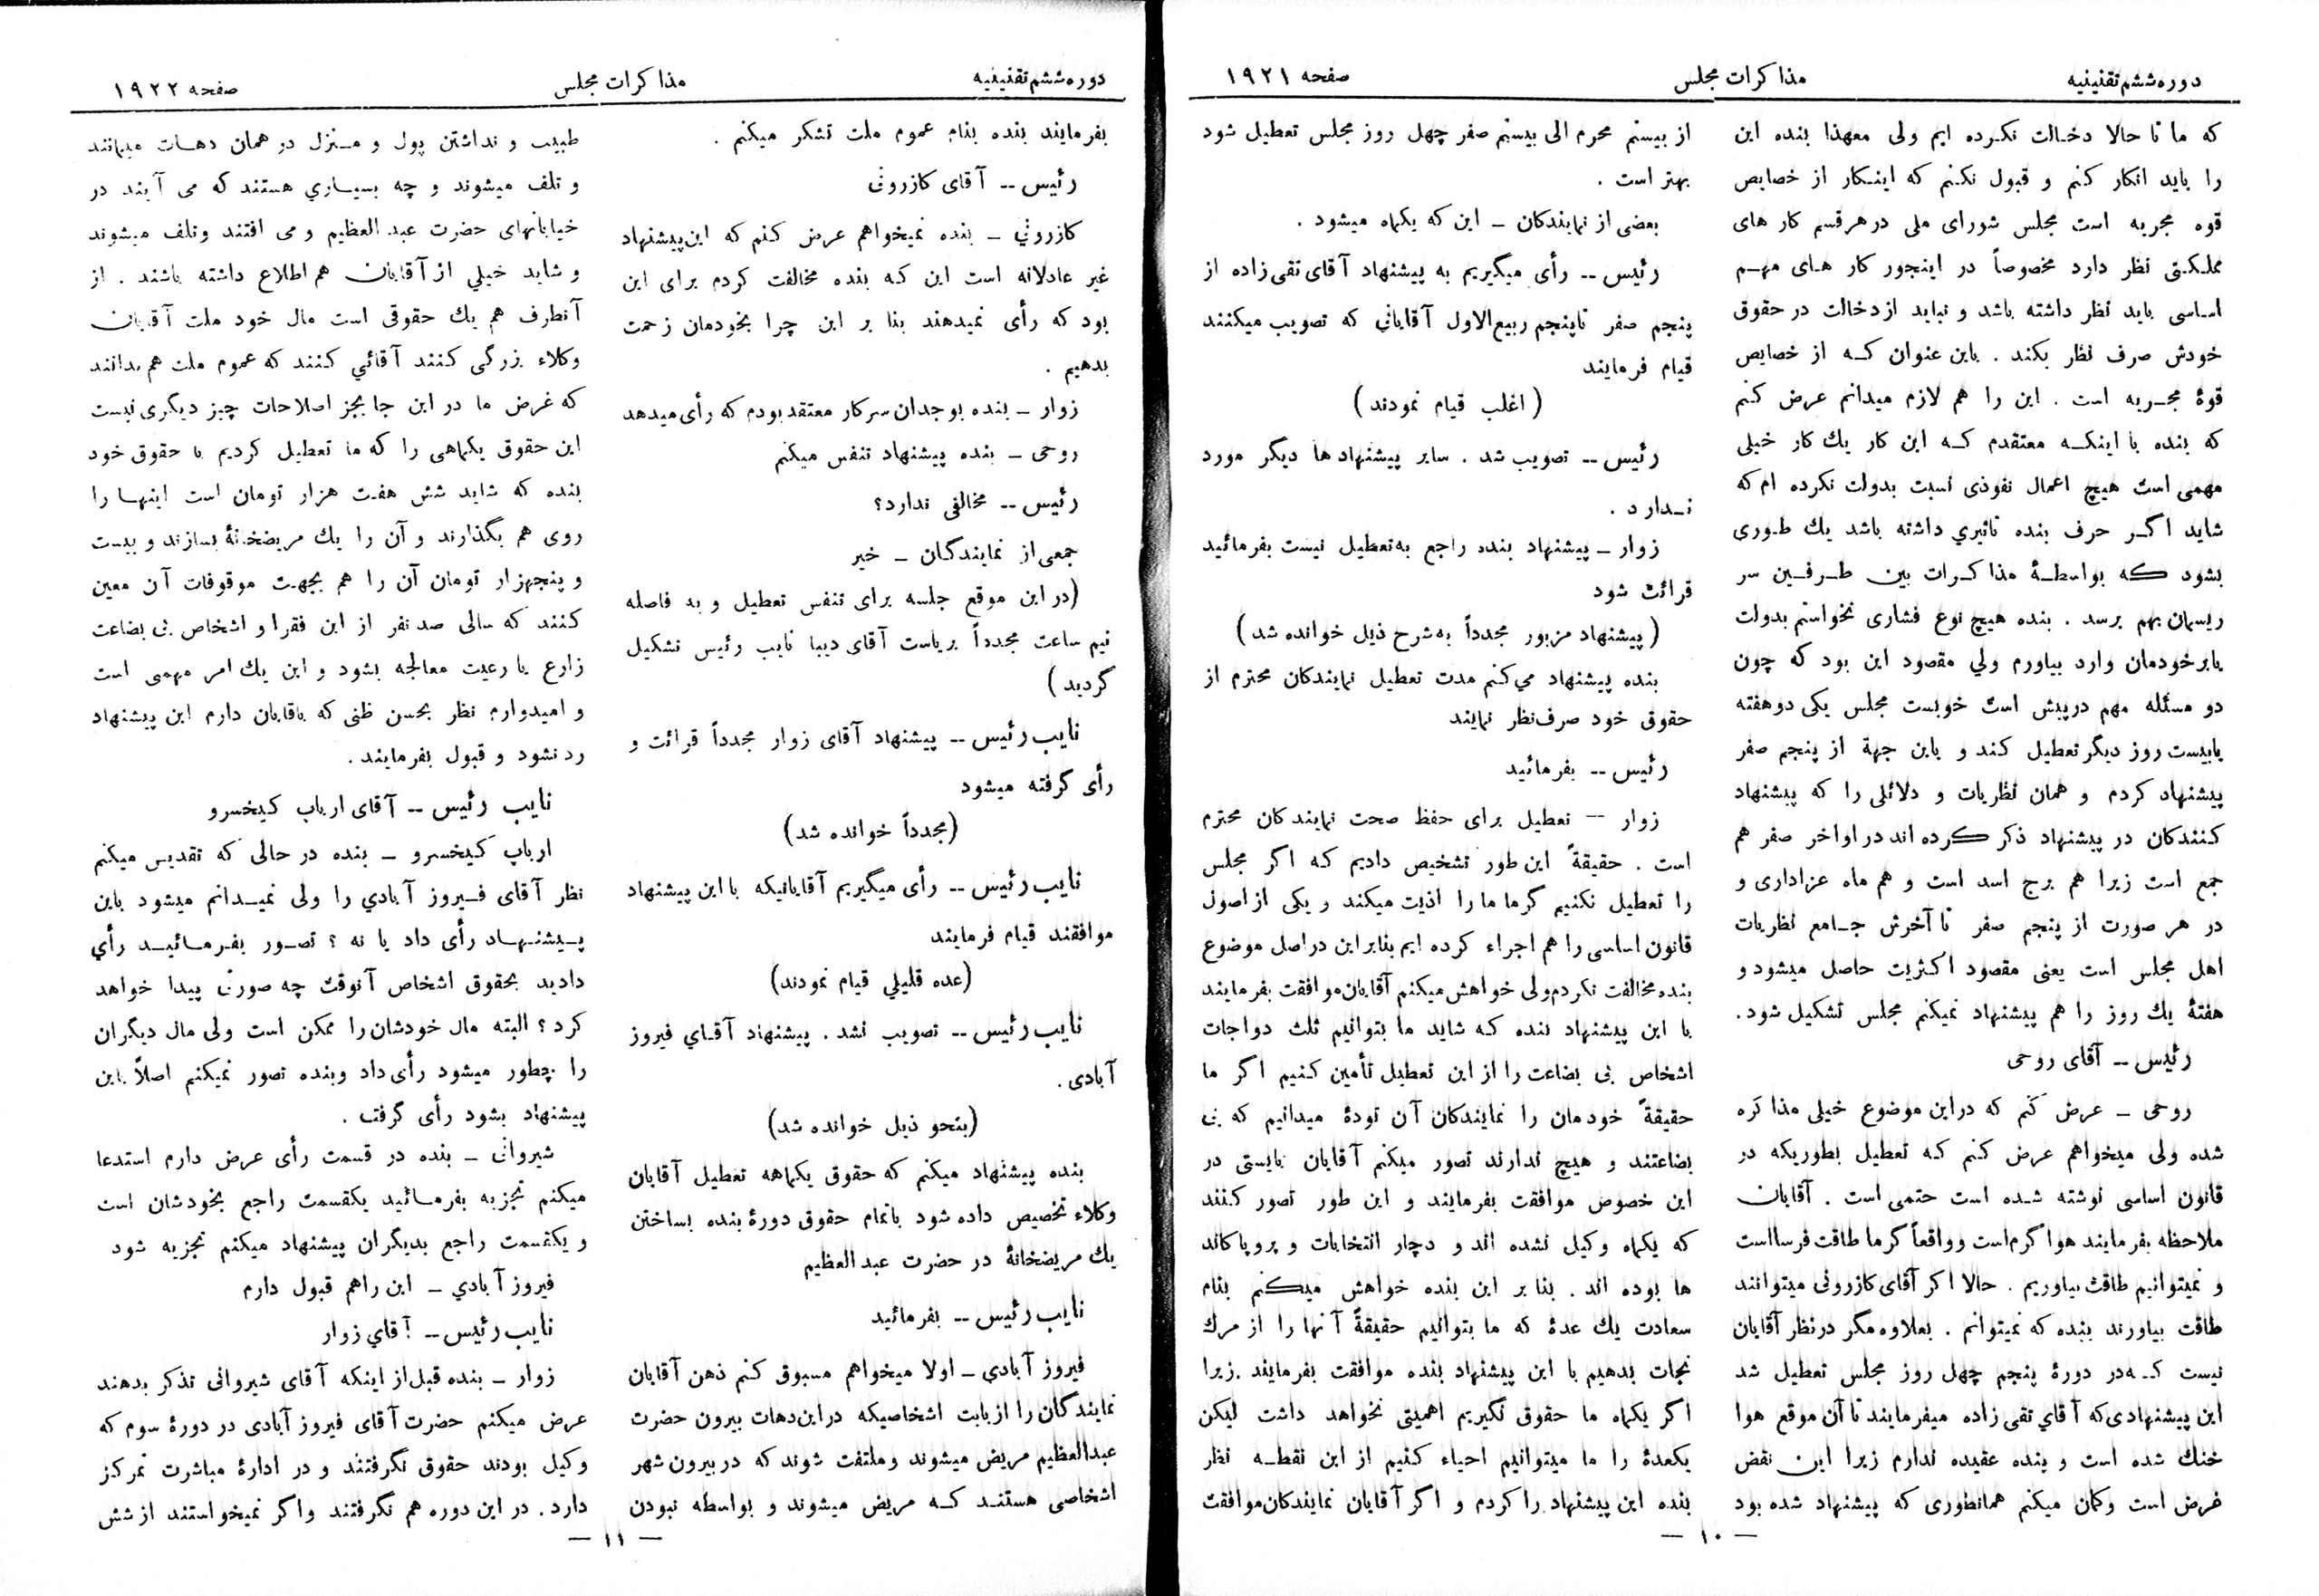 دوره ششم تقنینیه
مذاکرات مجلس
صفحه ۱۹۲۱
که ما تا حالا دخالت نکرده ایم ولی معهذا بنده این
را باید انکار کنم و قبول نکنم که اینکار از خصایص
قوه مجریه است مجلس شورای ملی در هر قسم کار های
مملکتی نظر دارد مخصوصاً در اینجور کار های مهم
اساسی باید نظر داشته باشد و نباید از دخالت در حقوق
خودش صرف نظر بکند . باین عنوان که از خصایص
قوۀ مجریه است . این را هم لازم میدانم عرض کنم
که بنده با اینکه معتقدم که این کار یك کار خیلی
مهمی است هیچ اعمال نفوذی نسبت بدولت نکرده ام که
شاید اگر حرف بنده تاثیري داشته باشد یك طوری
بشود که بواسطۀ مذاکرات بین طرفین سر
ریسمان بهم برسد . بنده هیچ نوع فشاری نخواستم بدولت
یا بر خودمان وارد بیاورم ولي مقصود این بود که چون
دو مسئله مهم در پیش است خوبست مجلس یکی دو هفته
یا بیست روز دیگر تعطیل کند و باین جهة از پنجم صفر
پیشنهاد کردم و همان نظریات و دلائلی را که پیشنهاد
کنندکان در پیشنهاد ذکر کرده اند در اواخر صفر هم
جمع است زیرا هم برج اسد است و هم ماه عزاداری و
در هر صورت از پنجم صفر تا آخرش جامع نظریات
اهل مجلس است یعنی مقصود اکثریت حاصل میشود و
هفتۀ یك روز را هم پیشنهاد نمیکنم مجلس تشکیل شود.
رئیس -- آقای روحی
روحی - عرض کنم که در این موضوع خیلی مذاکره
شده ولی میخواهم عرض کنم که تعطیل بطوریکه در
قانون اساسی نوشته شده است حتمی است . آقایان
ملاحظه بفرمایند هوا گرم است و واقعاً گرما طاقت فرسااست
و نمیتوانیم طاقت بیاوریم . حالا اگر آقای کازرونی میتوانند
طاقت بیاورند بنده که نمیتوانم . بعلاوه مگر در نظر آقایان
نیست که در دورۀ پنجم چهل روز مجلس تعطیل شد
این پیشنهادی که آقاي تقی زاده میفرمایند تا آن موقع هوا
خنك شده است و بنده عقیده ندارم زیرا این نقض
غرض است و گمان میکنم همانطوری که پیشنهاد شده بود
از بیستم محرم الی بیستم صفر چهل روز مجلس تعطیل شود
بهتر است .
بعضی از نمایندکان - این که یکماه میشود .
رئیس -- رأی میگیریم به پیشنهاد آقای تقی زاده از
پنجم صفر تا پنجم ربیع الاول آقایانی که تصویب میکنند
قیام فرمایند
( اغلب قیام نمودند )
رئیس -- تصویب شد . سایر پیشنهاد ها دیگر مورد
ندارد .
زوار - پیشنهاد بنده راجع به تعطیل نیست بفرمائید
قرائت شود
( پیشنهاد مزبور مجدداً به شرح ذیل خوانده شد )
بنده پیشنهاد می کنم مدت تعطیل نمایندکان محترم از
حقوق خود صرف نظر نمایند
رئیس -- بفرمائید
زوار -- تعطیل برای حفظ صحت نمایندکان محترم
است . حقیقةً این طور تشخیص دادیم که اگر مجلس
را تعطیل نکنیم گرما ما را اذیت میکند و یکی از اصول
قانون اساسی را هم اجراء کرده ایم بنابراین در اصل موضوع
بنده مخالفت نکردم ولی خواهش میکنم آقایان موافقت بفرمایند
با این پیشنهاد بنده که شاید ما بتوانیم ثلث دواجات
اشخاص بی بضاعت را از این تعطیل تأمین کنیم اگر ما
حقیقةً خودمان را نمایندکان آن تودۀ میدانیم که بی
بضاعتند و هیچ ندارند تصور میکنم آقایان بایستی در
این خصوص موافقت بفرمایند و این طور تصور کنند
که یکماه وکیل نشده اند و دچار انتخابات و پروپاکاند
ها بوده اند . بنا بر این بنده خواهش میکنم بنام
سعادت یك عدۀ که ما بتوانیم حقیقةً آنها را از مرك
نجات بدهیم با این پیشنهاد بنده موافقت بفرمایند زیرا
اگر یکماه ما حقوق نگیریم اهمیتی نخواهد داشت لیکن
یکعدۀ را ما میتوانیم احیاء کنیم از این نقطه نظر
بنده این پیشنهاد را کردم و اگر آقایان نمایندکان موافقت
— ۱۰ —
دوره ششم تقنینیه
مذاکرات مجلس
صفحه ۱۹۲۲
بفرمایند بنده بنام عموم ملت تشکر میکنم .
رئیس -- آقای کازرونی
کازرونی - بنده نمیخواهم عرض کنم که این پیشنهاد
غیر عادلانه است این که بنده مخالفت کردم برای این
بود که رأی نمیدهند بنا بر این چرا بخودمان زحمت
بدهیم .
زوار - بنده بوجدان سرکار معتقد بودم که رأی میدهد
روحی - بنده پیشنهاد تنفس میکنم
رئیس -- مخالفی ندارد؟
جمعی از نمایندگان - خیر
(در این موقع جلسه برای تنفس تعطیل و به فاصله
نیم ساعت مجدداً بریاست آقای دیبا نایب رئیس تشکیل
گردید )
نایب رئیس -- پیشنهاد آقای زوار مجدداً قرائت و
رأی گرفته میشود
(مجدداً خوانده شد)
نایب رئیس -- رأی میگیریم آقایانیکه با این پیشنهاد
موافقند قیام فرمایند
(عده قلیلي قیام نمودند)
نایب رئیس -- تصویب نشد . پیشنهاد آقاي فیروز
آبادی .
(بنحو ذیل خوانده شد)
بنده پیشنهاد میکنم که حقوق یکماهه تعطیل آقایان
وکلاء تخصیص داده شود باتمام حقوق دورۀ بنده بساختن
یك مریضخانۀ در حضرت عبد العظیم
نایب رئیس -- بفرمائید
فیروز آبادي - اولا میخواهم مسبوق کنم ذهن آقایان
نمایندگان را از بابت اشخاصیکه در این دهات بیرون حضرت
عبدالعظیم مریض میشوند و ملتفت شوند که در بیرون شهر
اشخاصی هستند که مریض میشوند و بواسطه نبودن
طبیب و نداشتن پول و منزل در همان دهات میمانند
و تلف میشوند و چه بسیاري هستند که می آیند در
خیابانهای حضرت عبد العظیم و می افتند و تلف میشوند
و شاید خیلي از آقایان هم اطلاع داشته باشند . از
آنطرف هم یك حقوقی است مال خود ملت آقایان
وکلاء بزرگی کنند آقائي کنند که عموم ملت هم بدانند
که غرض ما در این جا بجز اصلاحات چیز دیگری نیست
این حقوق یکماهی را که ما تعطیل کردیم با حقوق خود
بنده که شاید شش هفت هزار تومان است اینها را
روی هم بگذارند و آن را یك مریضخانۀ بسازند و بیست
و پنجهزار تومان آن را هم بجهت موقوفات آن معین
کنند که سالی صد نفر از این فقرا و اشخاص بی بضاعت
زارع یا رعیت معالجه بشود و این یك امر مهمی است
و امیدوارم نظر بحسن ظنی که باقایان دارم این پیشنهاد
رد نشود و قبول بفرمایند .
نایب رئیس -- آقای ارباب کیخسرو
ارباب کیخسرو - بنده در حالی که تقدیس میکنم
نظر آقای فیروز آبادي را ولی نمیدانم میشود باین
پیشنهاد رأی داد یا نه ؟ تصور بفرمائید رأي
دادید بحقوق اشخاص آنوقت چه صورتی پیدا خواهد
کرد ؟ البته مال خودشان را ممکن است ولی مال دیگران
را چطور میشود رأی داد و بنده تصور نمیکنم اصلاً باین
پیشنهاد بشود رأی گرفت .
شیروانی - بنده در قسمت رأی عرض دارم استدعا
میکنم تجزیه بفرمائید یکقسمت راجع بخودشان است
و یکقسمت راجع بدیگران پیشنهاد میکنم تجزیه شود
فیروز آبادي - این راهم قبول دارم
نایب رئیس -- آقاي زوار
زوار - بنده قبل از اینکه آقای شیروانی تذکر بدهند
عرض میکنم حضرت آقای فیروز آبادی در دورۀ سوم که
وکیل بودند حقوق نگرفتند و در ادارۀ مباشرت تمرکز
دارد . در این دوره هم نگرفتند و اگر نمیخواستند از شش
— ۱۱ —